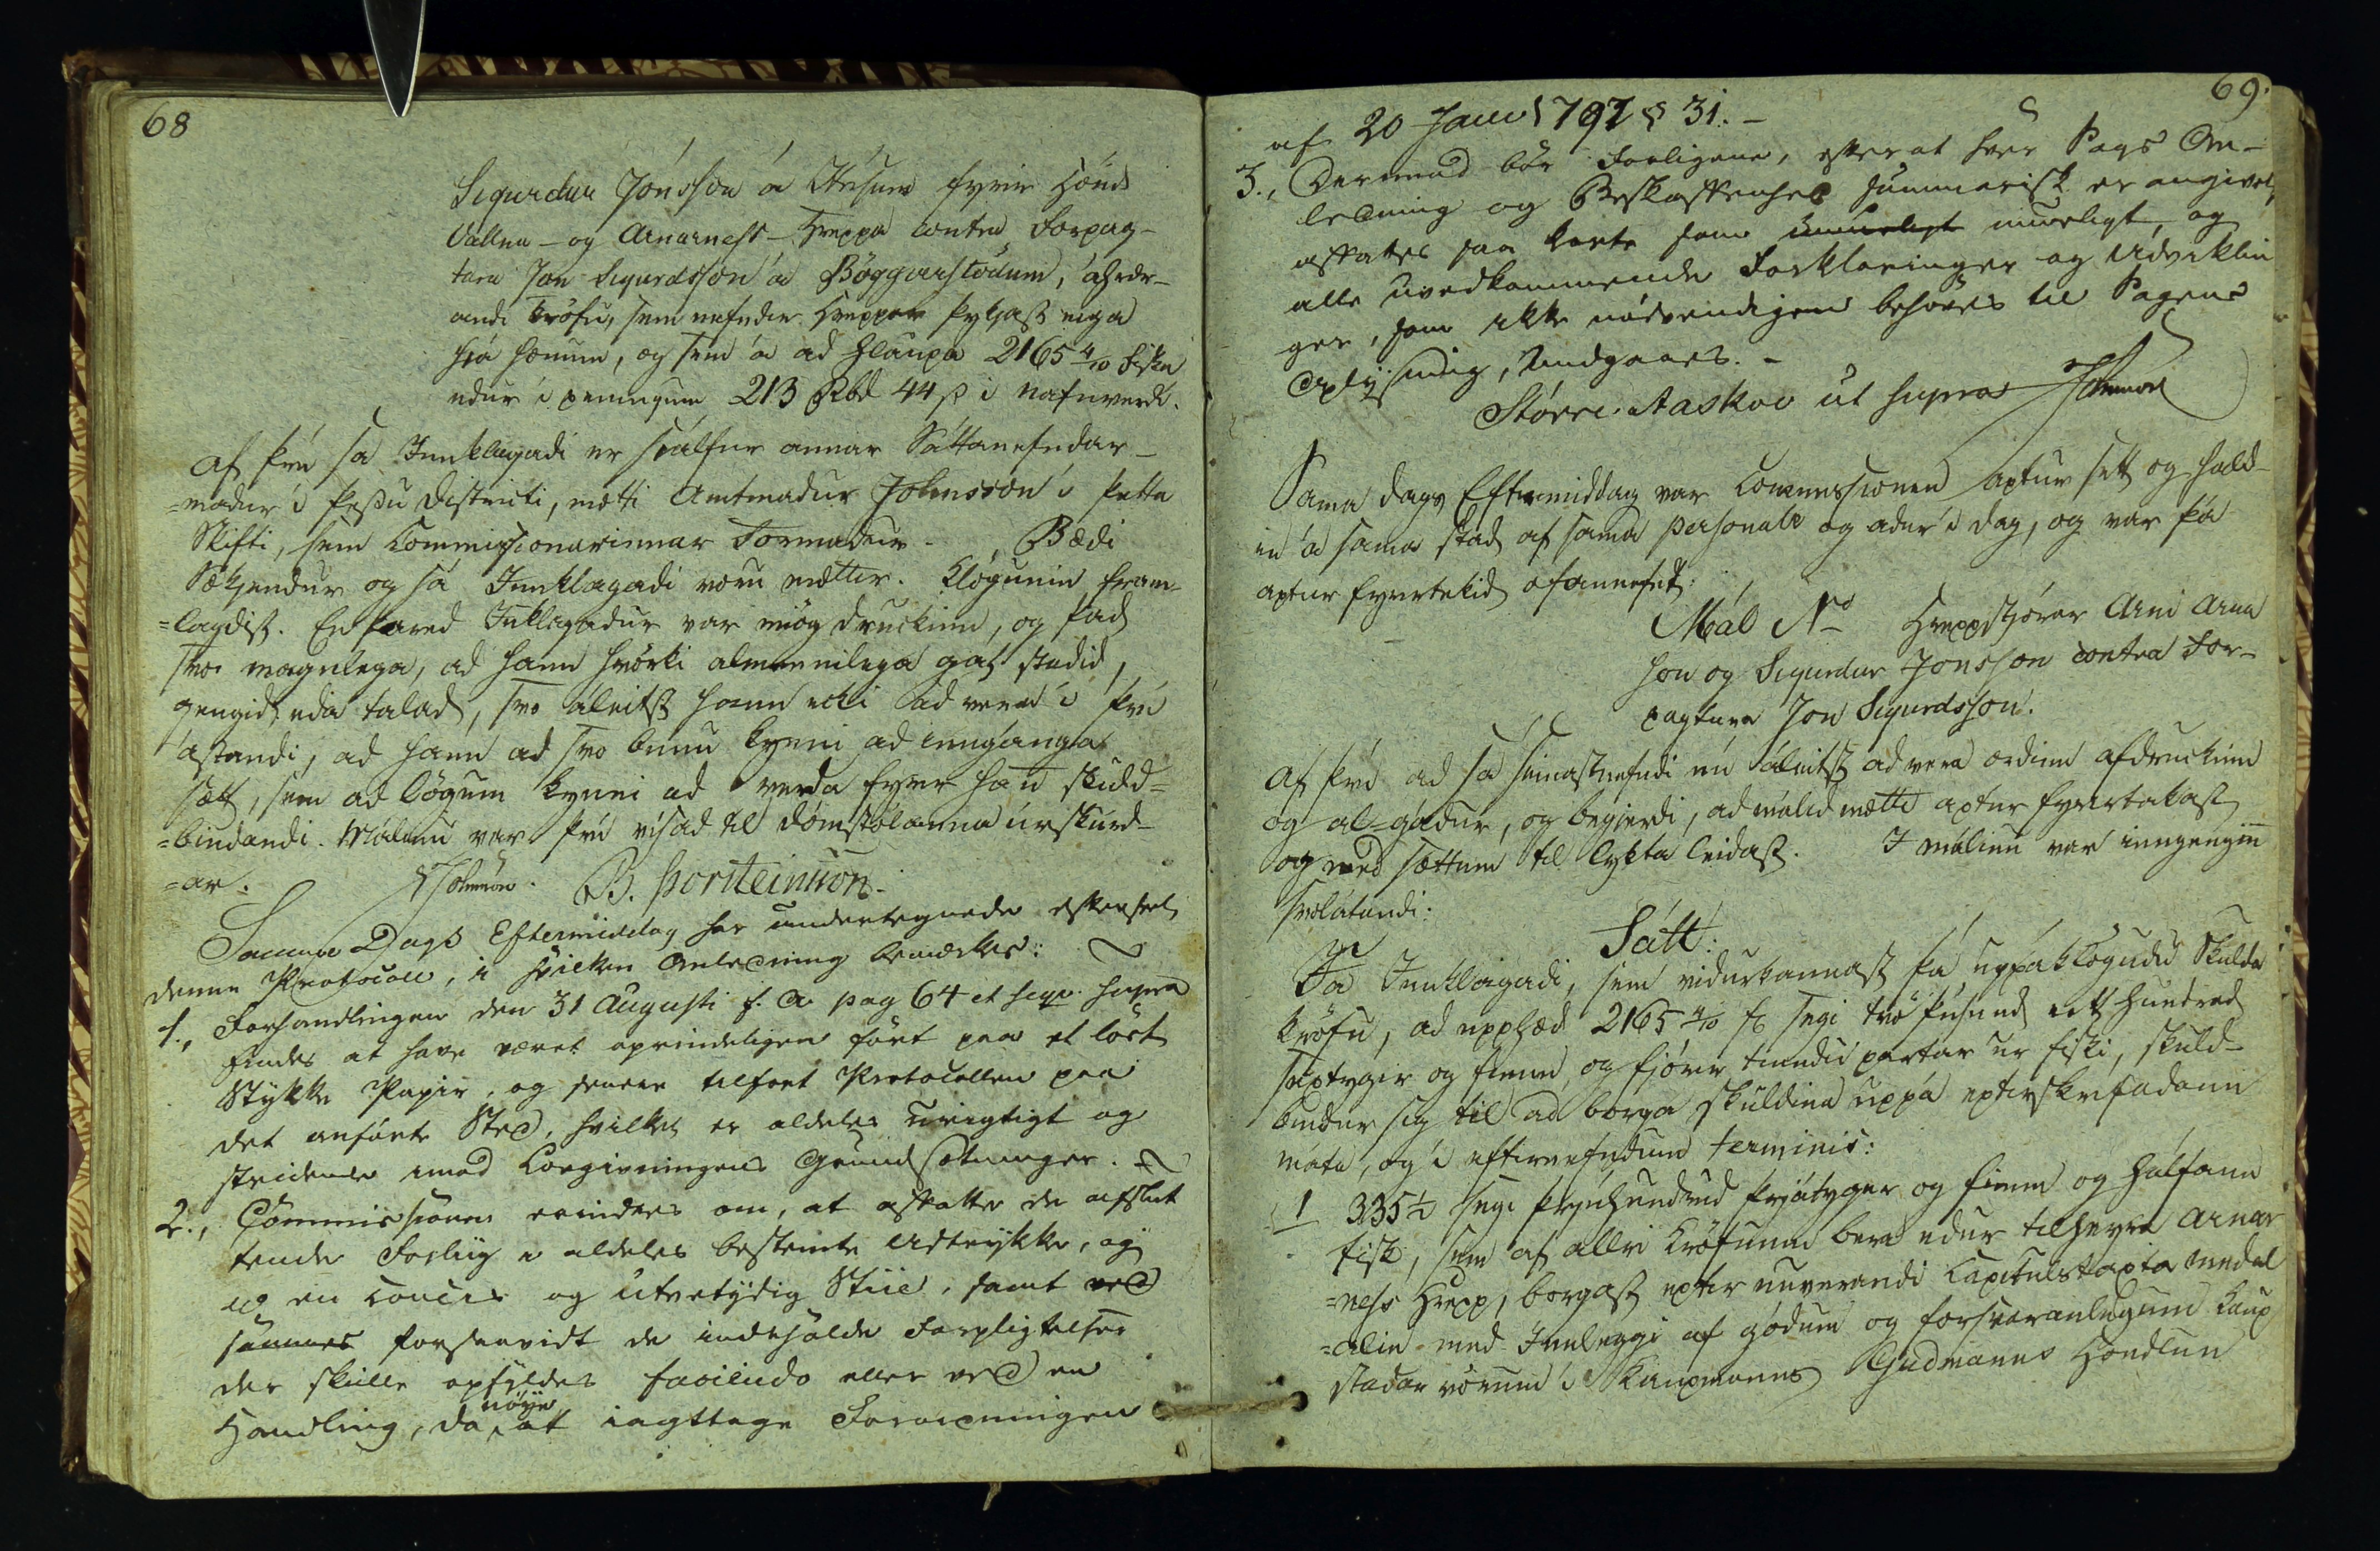 68
Sigurdur Jónsson á Hrísum fyrir hönd
Vallna- og Arnarness-Hreppa contra Forpag-
tara Jón Sigurdsson á Böggverstödum, áhrær-
andi kröfu, sem nefndir Hreppar þykjast eiga
hjá honum, og sem á ad hlaupa 2165 4/10 fiska
edur í peningum 213 Rbd 44 ß í nafnverdi.
Af því sá Innklagadi er sjálfur annar Sáttanefndar-
=madur í þessu Districti, mætti Amtmadur Johnsson í þetta
Skifti, sem Commissionarinnar Formadur. Bædi
Sækjendur og sá Innklagadi voru mættir. Klögunin fram-
=lagdist. En þared Inklagadur var miög druckinn, og það
svo magnlega, ad hann hvörki almennilega gat stadid,
gengid eda talad, svo áleitst hann ecki ad vera í því
ástandi, ad hann ad svo bunu kynni ad inngánga
sætt, sem ad lögum kynni ad verda fyrir hann skuld=
=bindandi. Málinu var því vísad til dómstólanna úrskurd-
=ar. Johnsson. B. Þorsteinsson.
Samme Dags Eftermiddag har undertegnede efterseet
denne Protocoll, i hvilken Anledning bemærkes:
1., Forhandlingen den 31 Augusti f. A. pag 64 et seqv. supra
findes at have været oprindeligen fört paa et löst
Stykke Papir, og senere tilfört Protocollen paa
det anförte Sted, hvilket er aldeles urigtigt og
stridende imod Lovgivningens Grundsætninger.
2., Commissionen erindres om, at affatte de afslut
tende Forliig i aldeles bestemte Udtrykke, og
i en concis og utvetydig Stiil, samt ved
sammes forsaavidt de indeholde Forpligtelser
der skulle opfyldes faciendo eller ved en
Handling, da nöye at iagttage Forordningen
69.
af 20 Janu 1797 § 31. -
3., Dermed bör Forligene, efter at hver Sags An-
ledning og Beskaffenhed summarisk er angivet,
affattes saa korte som mueligt, og
alle uvedkommende Forklaringer og Udviklin
ger, som ikke nödvendigen behöves til Sagens
Oplysning, undgaaes. -
Större Aaskov ut supra Johnsson
Sama dags Eftermiddag var Commissionen aptur sett og hald-
in á sama stad af sama personale og adur í dag, og var þá
aptur fyrirtekid ofannefnt:
Mál No Hreppstjórar Arni Arna
son og Sigurdur Jonsson contra For-
pagtara Jon Sigurdsson.
Af því ad sá seinastnefndi nú áleitst ad vera ordinn afdruckinn
og al-gádur, og begjerdi, ad málid mætti aptur fyrirtakast
og med sættum til lykta leidast. I málinu var inngengin
svolátandi:
Sátt:
Sá Innklagadi, sem vidurkannast þá uppáklögudu Skulda
kröfu, ad upphæd 2165 4/10 f segi tvö þúsund eitt hundrad
sextyger og fimm, og fjórir tiundu partar úr fiski, skuld-
bindur sig til ad borga skuldina uppá eptirskrifadann
máta, og í eftirnefndum terminis:
1 335½ segi þrjúhundrud þrjátyger og fimm og hálfann
fisk, sem af allri kröfunni bera edur tilheyra Arnar
=ness Hrepp, borgast eptir nuverandi Capitulstaxta medal
=alin med Innleggi af gódum og forsvaranlegum Kaup
stadar vörum í Kaupmanns Gudmanns Höndlun